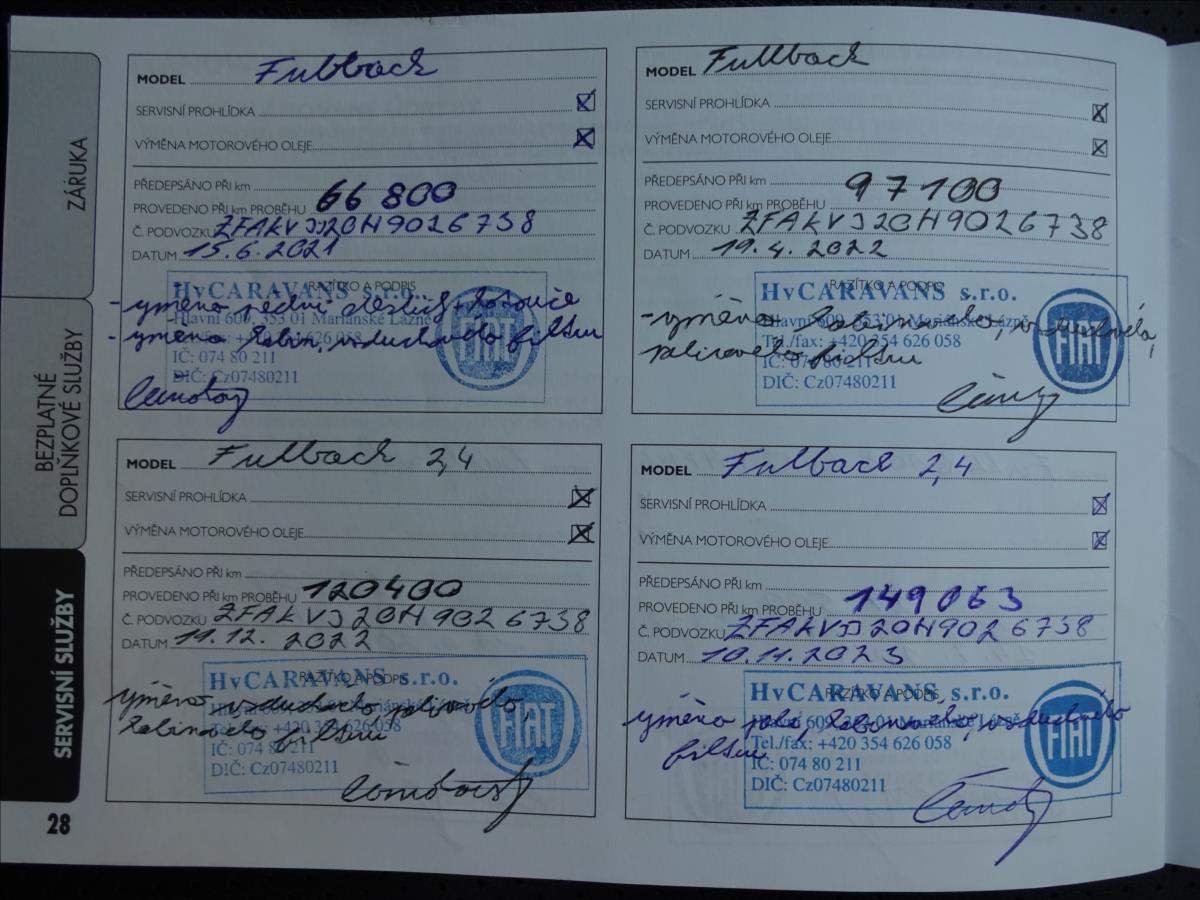 ZÁRUKA
BEZPLATNÉ
DOPLŇKOVÉ SLUŽBY
SERVISNÍ SLUŽBY
28
MODEL Fullback
SERVISNÍ PROHLÍDKA
VÝMĚNA MOTOROVÉHO OLEJE
PŘEDEPSÁNO PŘI km
PROVEDENO PŘI KM PROBĚHU 66 800
Č. PODVOZKU ZFAKVJJ20H9026738
DATUM 15.6.2021
RAZÍTKO A PODPIS
HvCARAVANS s.r.o.
Hlavní 609, 353 01 Mariánské Lázně
626 058
IČ: 074 80 211
DIČ: Cz07480211
FIAT
- výměna
- výměna kabin, vzduchového filtru
MODEL Fullback
SERVISNÍ PROHLÍDKA
VÝMĚNA MOTOROVÉHO OLEJE
PŘEDEPSÁNO PŘI km
PROVEDENO PŘI KM PROBĚHU 97100
Č. PODVOZKU ZFAKVJ20H9026738
DATUM 19.4.2022
RAZÍTKO A PODPIS
HvCARAVANS s.r.o.
Hlavní 609, 353 01 Mariánské Lázně
Tel./fax: +420 354 626 058
IČ: 074 80 211
DIČ: Cz07480211
FIAT
- výměna kabinového, vzduchového,
palivového filtru
MODEL Fulback 2,4
SERVISNÍ PROHLÍDKA
VÝMĚNA MOTOROVÉHO OLEJE
PŘEDEPSÁNO PŘI km
PROVEDENO PŘI KM PROBĚHU 120400
Č. PODVOZKU ZFAKVJ20H9026738
DATUM 11.12.2022
RAZÍTKO A PODPIS
HvCARAVANS s.r.o.
Tel./fax: +420 354 626 058
IČ: 074 80 211
DIČ: Cz07480211
FIAT
výměna vzduchového, palivového,
kabinového filtru
MODEL Fulback 2,4
SERVISNÍ PROHLÍDKA
VÝMĚNA MOTOROVÉHO OLEJE
PŘEDEPSÁNO PŘI km
PROVEDENO PŘI KM PROBĚHU 149063
Č. PODVOZKU ZFAKVJJ20H9026738
DATUM 10.11.2023
RAZÍTKO A PODPIS
HvCARAVANS s.r.o.
Hlavní 609, 353 01 Mariánské Lázně
Tel./fax: +420 354 626 058
IČ: 074 80 211
DIČ: Cz07480211
FIAT
výměna kabinového, vzduchového
filtru